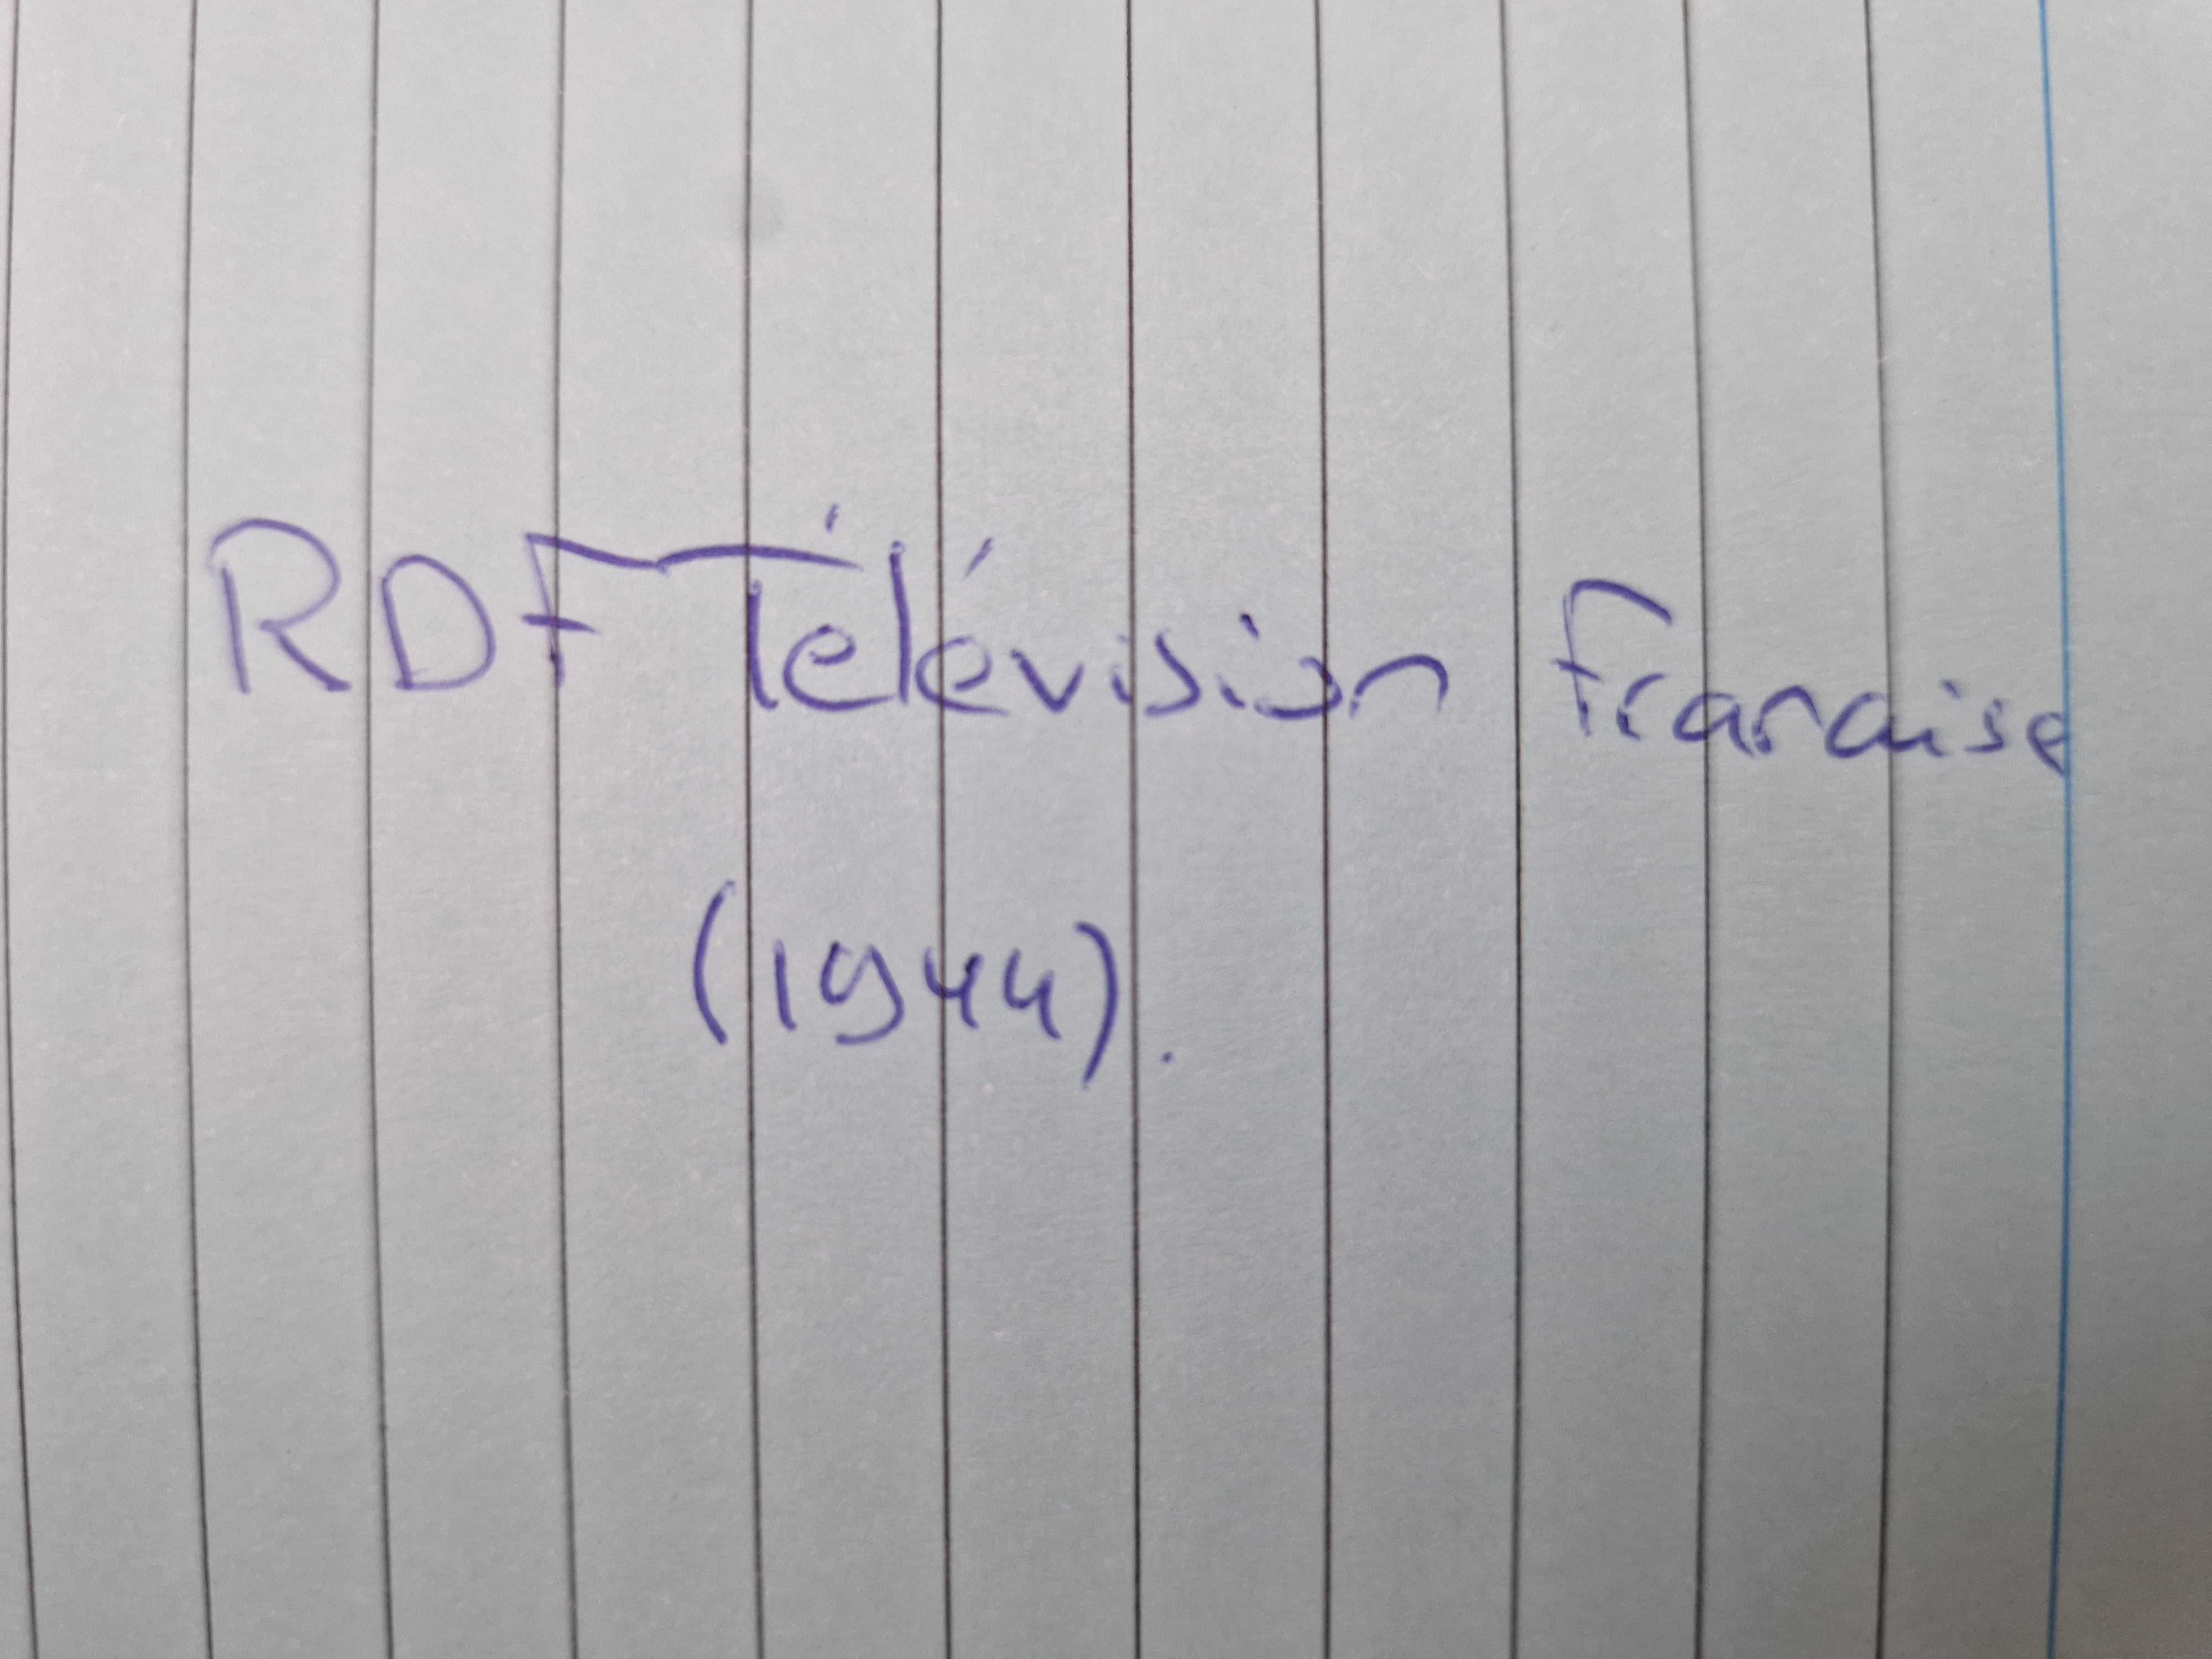 RDF Télévision Franaise
(1944).